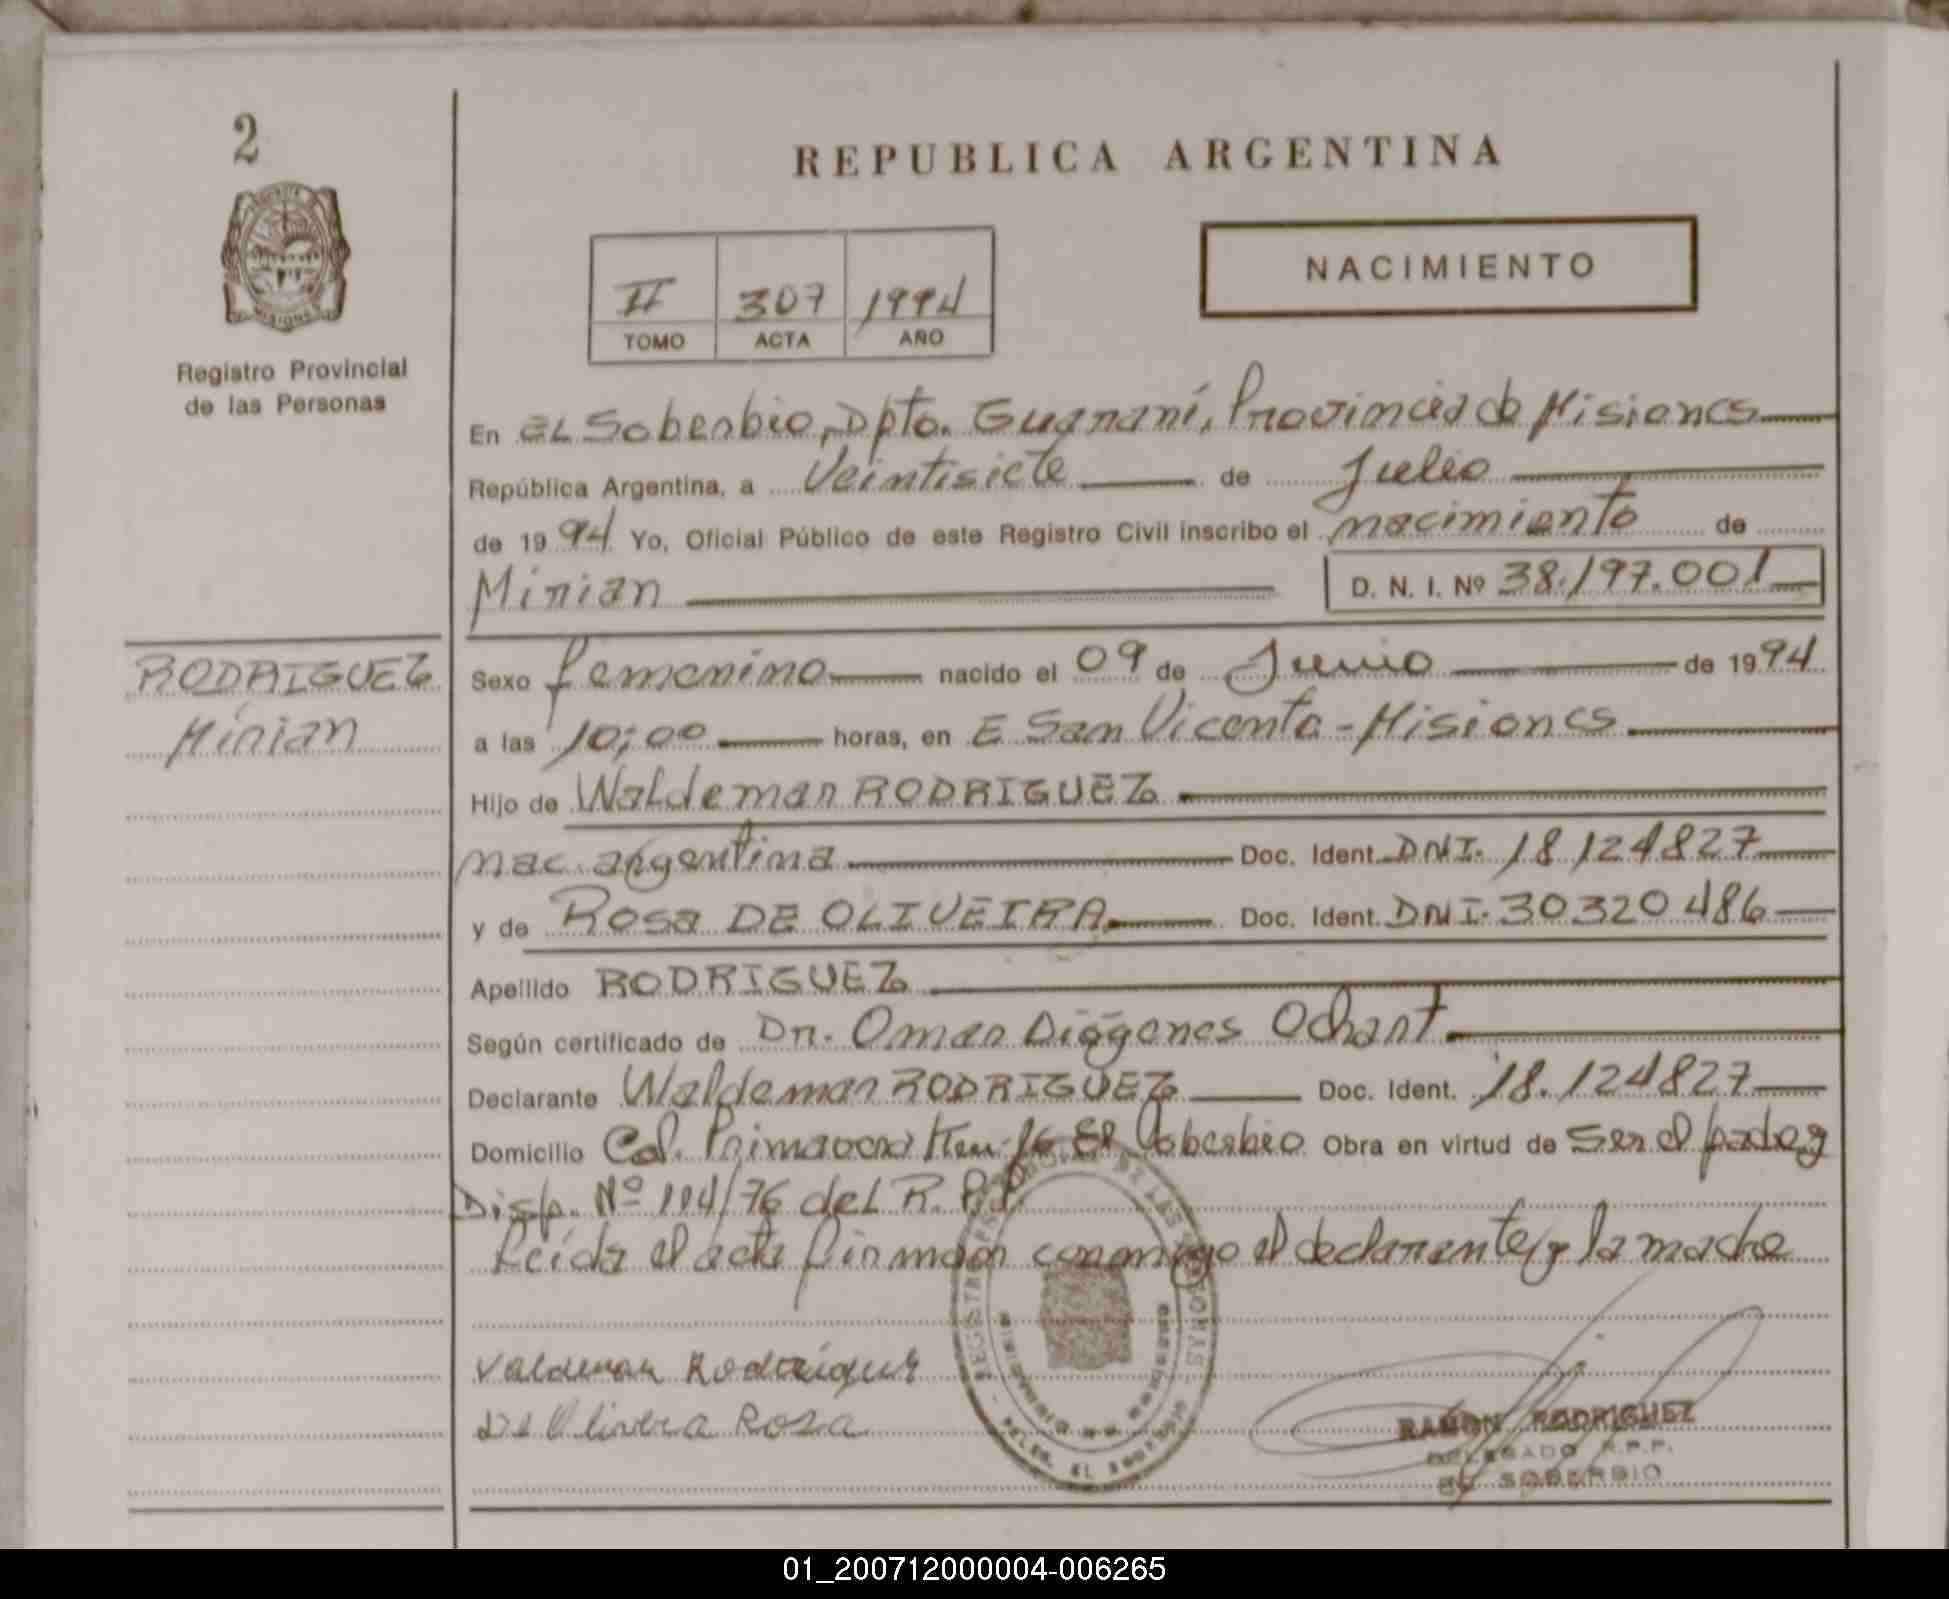 2
REPUBLICA ARGENTINA
NACIMIENTO
II 307 1994
TOMO ACTA AÑO
Registro Provincial
de las Personas
En EL Soberbio, Dpto. Guaraní, Provincia de Misiones
República Argentina, a Veintisiete de Julio
de 1994 Yo, Oficial Público de este Registro Civil inscribo el nacimiento de
Mirian D. N. I. Nº 38.197.001
RODRIGUEZ
Mirian
Sexo femenino nacido el 09 de Junio de 1994
a las 10;00 horas, en E San Vicente - Misiones
Hijo de Waldemar RODRIGUEZ
nac. argentina Doc. Ident. DNI. 18 124827
y de Rosa DE OLIVEIRA Doc. Ident. DNI. 30320486
Apellido RODRIGUEZ
Según certificado de Dr. Omar Diógenes Ochant
Declarante Waldemar RODRIGUEZ Doc. Ident. 18.124827
Domicilio Col. Primavera Km 16 El Soberbio Obra en virtud de Ser el padre y
Disp. Nº 114/76 del R. P. P.
Leída el acta firman conmigo el declarante y la madre
Valdemar Rodriguez
De Olivera Rosa
RAMON RODRIGUEZ
DELEGADO R.P.P.
EL SOBERBIO
01_200712000004-006265